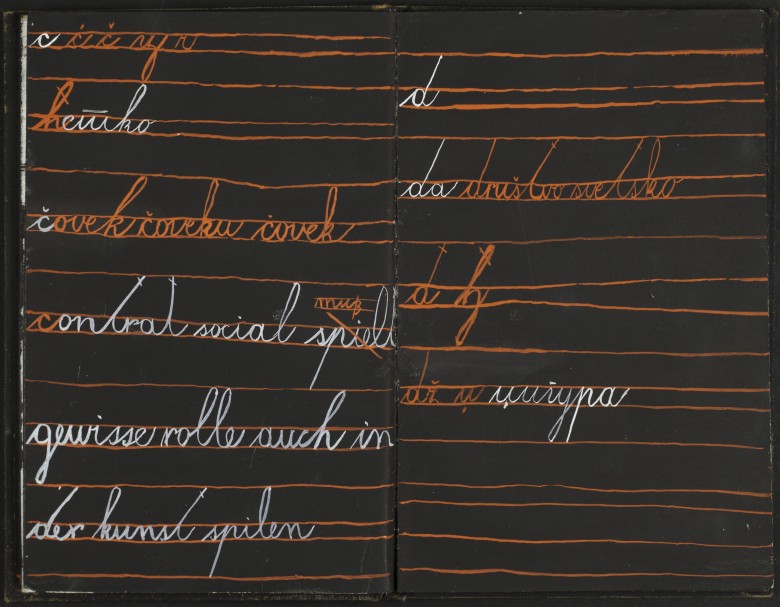 c ć č ц ч
ћетко
čovek čoveku čovek
contrat social spielt
gewisse rolle auch in
der kunst spilen
d
da društvo svetsko
đ ђ
dž џ џигура